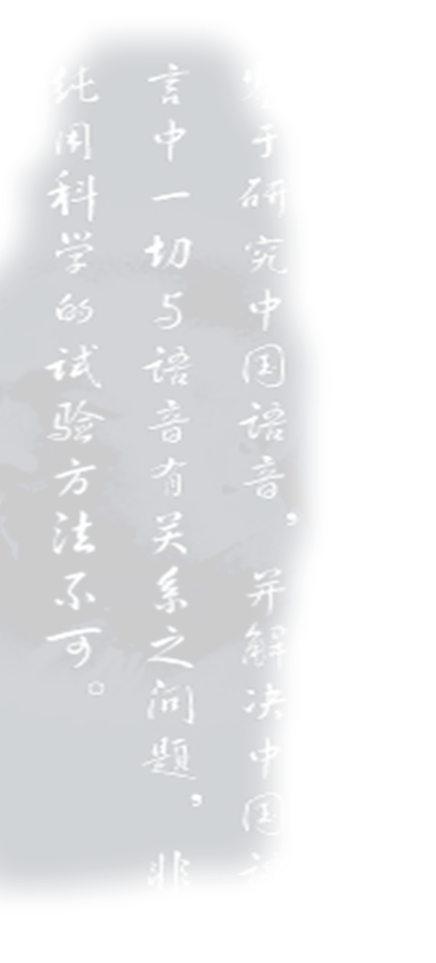 于研究中国语音,并解决中国
言中一切与语音有关系之问题,非
纯用科学的试验方法不可。